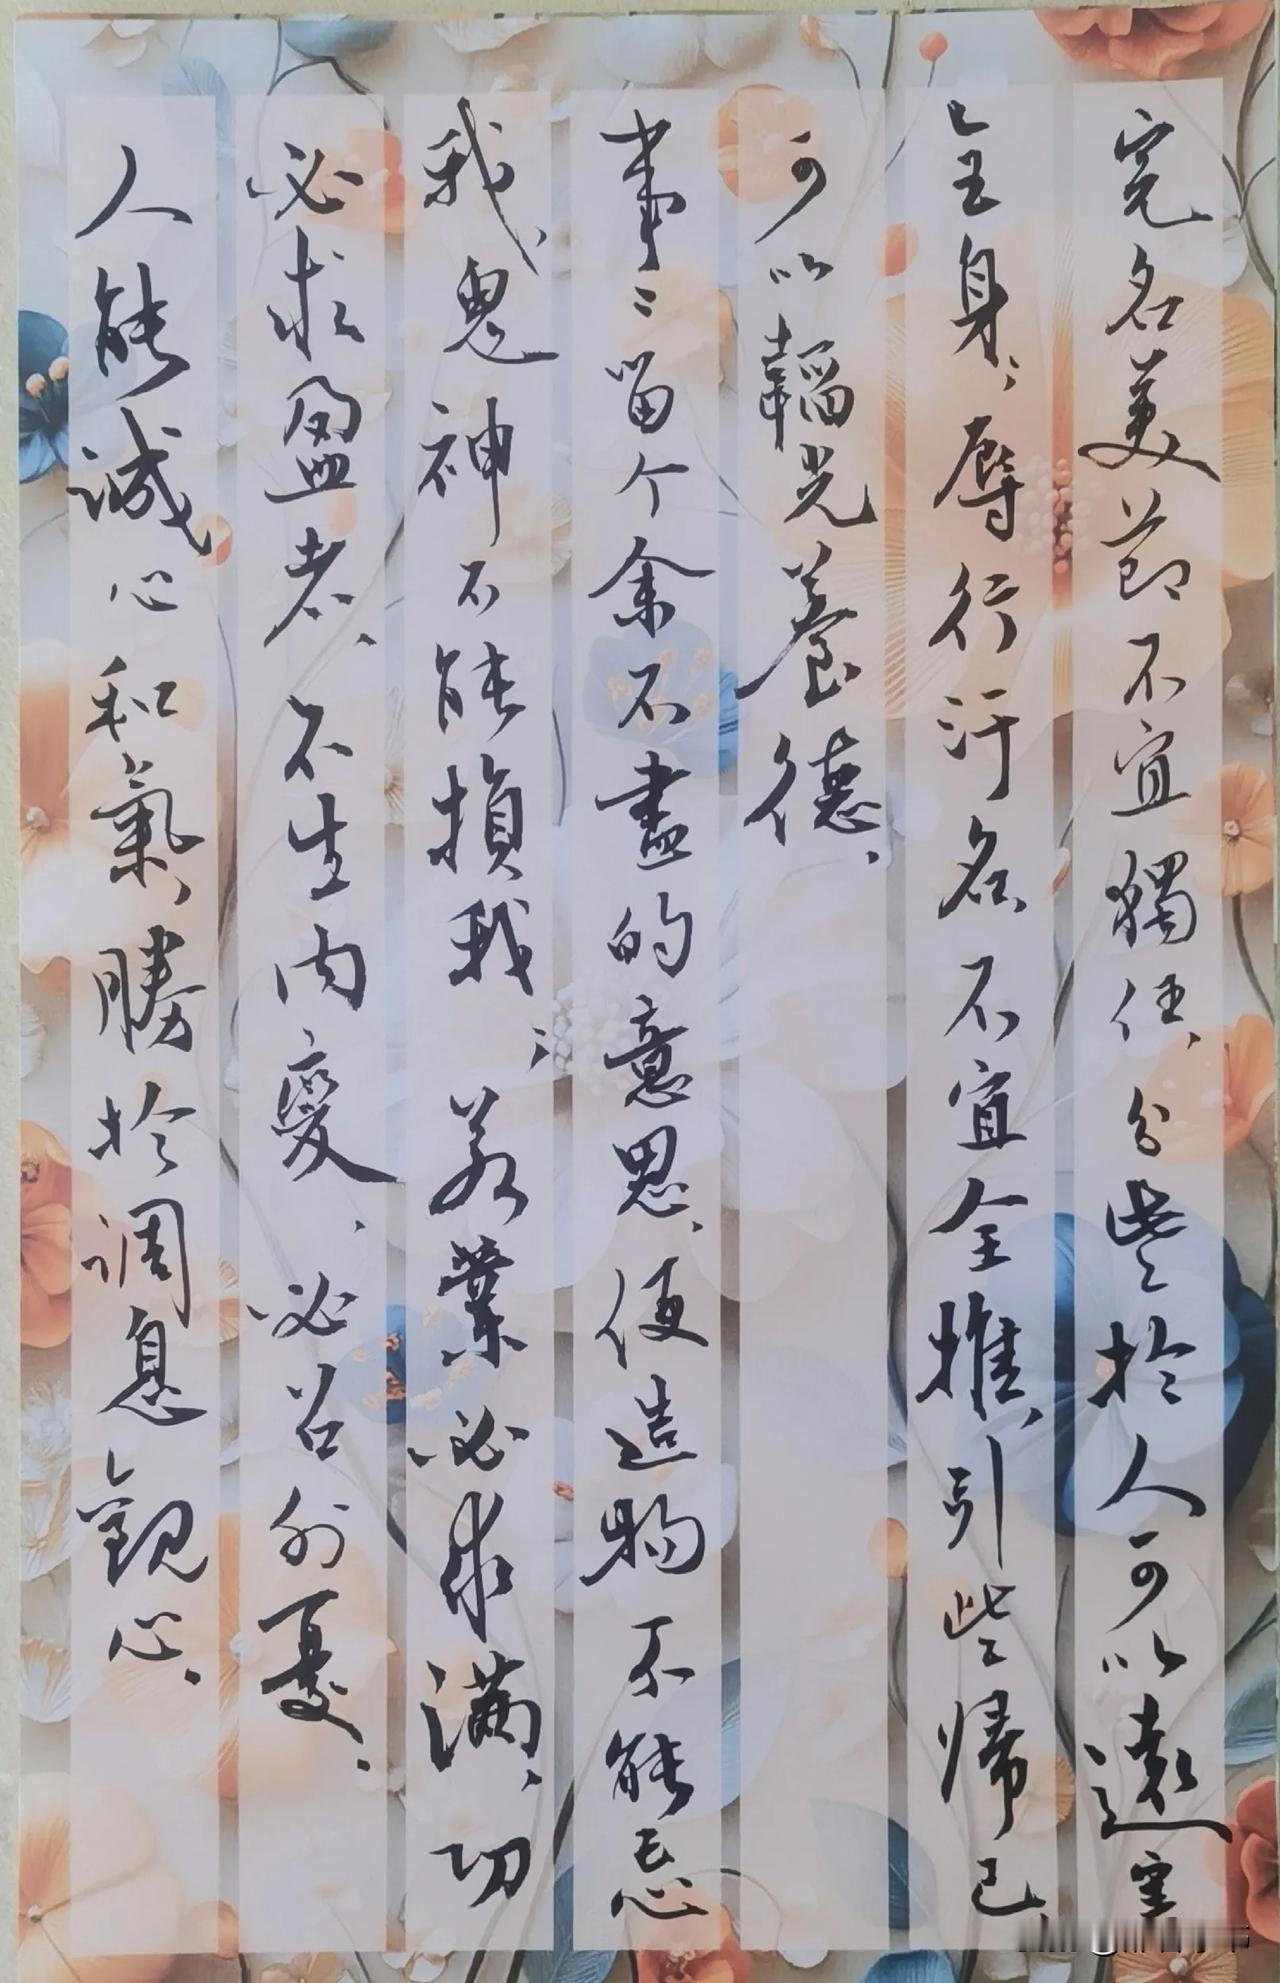 完名美節不宜獨任、分些於人可以遠害
全身；辱行汙名不宜全推、引些歸己
可以韜光養德、
事〻留个余不盡的意思、便造物不能忌
我、鬼神不能損我；若業必求滿、功
必求盈者、不生内變、必召外憂、
人能诚心和氣、勝於调息觀心、